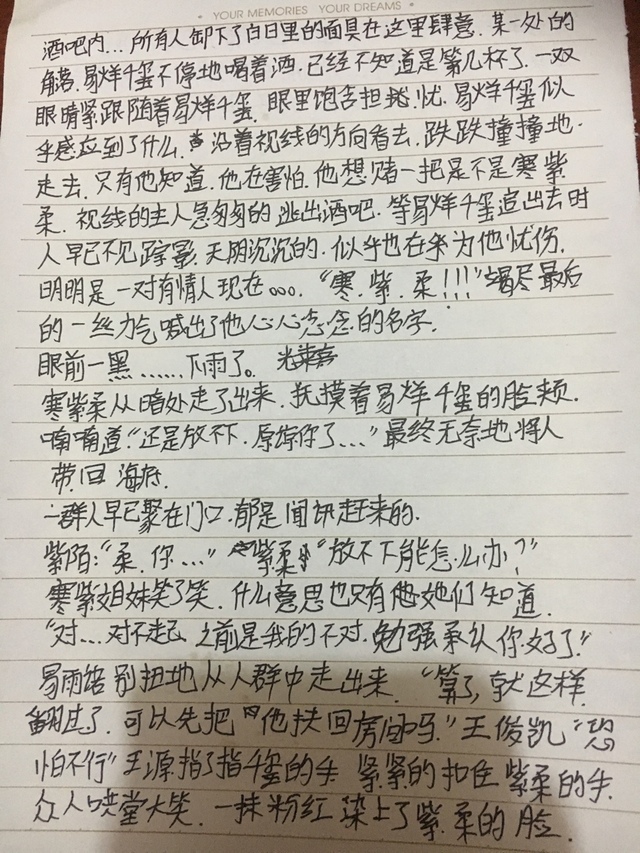 YOUR MEMORIES YOUR DREAMS
酒吧内...所有人卸下了白日里的面具在这里肆意.某一处的
角落.易烊千玺不停地喝着酒.已经不知道是第几杯了.一双
眼睛紧跟随着易烊千玺.眼里饱含担忧.易烊千玺似
乎感应到了什么.沿着视线的方向看去.跌跌撞撞地
走去.只有他知道.他在害怕.他想赌一把是不是寒紫
柔.视线的主人急匆匆的逃出酒吧.等易烊千玺追出去时
人早已不见踪影.天阴沉沉的.似乎也在为他忧伤.
明明是一对有情人现在......"寒.紫.柔!!!"竭尽最后
的一丝力气喊出了他心心念念的名字.
眼前一黑......下雨了。
寒紫柔从暗处走了出来.抚摸着易烊千玺的脸颊.
喃喃道:"还是放不下.原谅你了..."最终无奈地将人
带回海府.
一群人早已聚在门口.都是闻讯赶来的.
紫陌:"柔.你..." 紫柔"放不下能怎么办?"
寒紫姐妹笑了笑.什么意思也只有他她们知道.
"对...对不起.之前是我的不对.勉强承认你好了."
易雨馠别扭地从人群中走出来."算了,就这样
翻过了.可以先把他扶回房间吗."王俊凯"恐
怕不行"王源指了指千玺的手.紧紧的扣住紫柔的手.
众人哄堂大笑.一抹粉红染上了紫柔的脸.